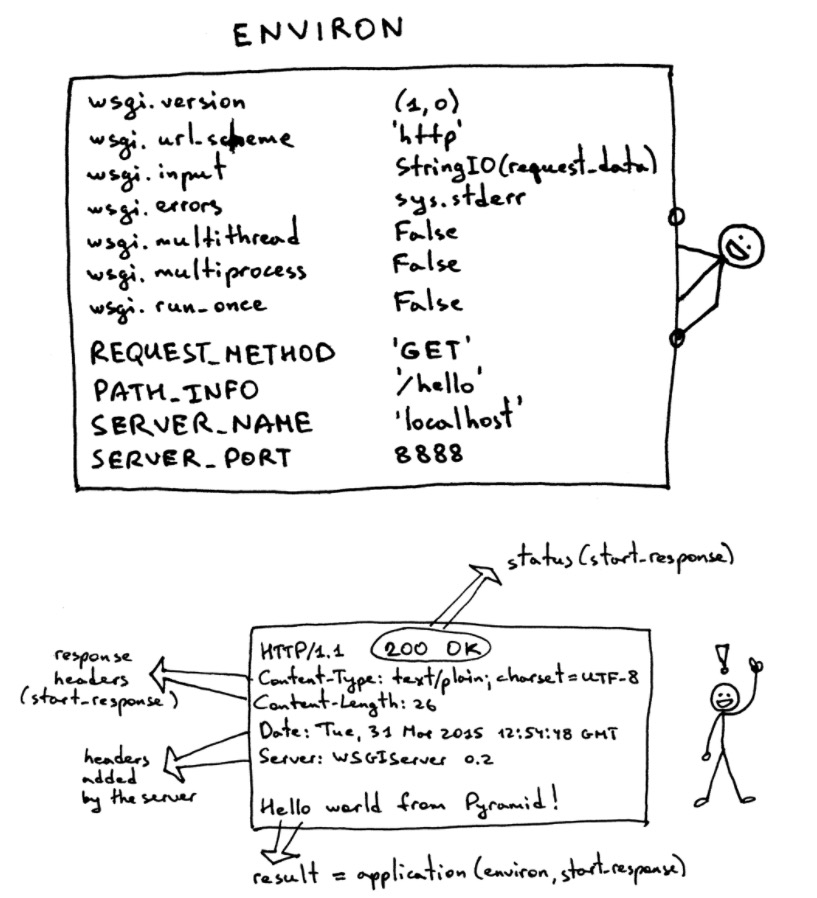 ENVIRON
wsgi.version (1,0)
wsgi.url_scheme 'http'
wsgi.input StringIO(request_data)
wsgi.errors sys.stderr
wsgi.multithread False
wsgi.multiprocess False
wsgi.run_once False
REQUEST_METHOD 'GET'
PATH_INFO '/hello'
SERVER_NAME 'localhost'
SERVER_PORT 8888
status (start_response)
HTTP/1.1 200 OK
Content-Type: text/plain; charset=UTF-8
Content-Length: 26
Date: Tue, 31 Mar 2015 12:54:48 GMT
Server: WSGIServer 0.2
Hello world from Pyramid!
response
headers
(start_response)
headers
added
by the server
!
result = application (environ, start_response)